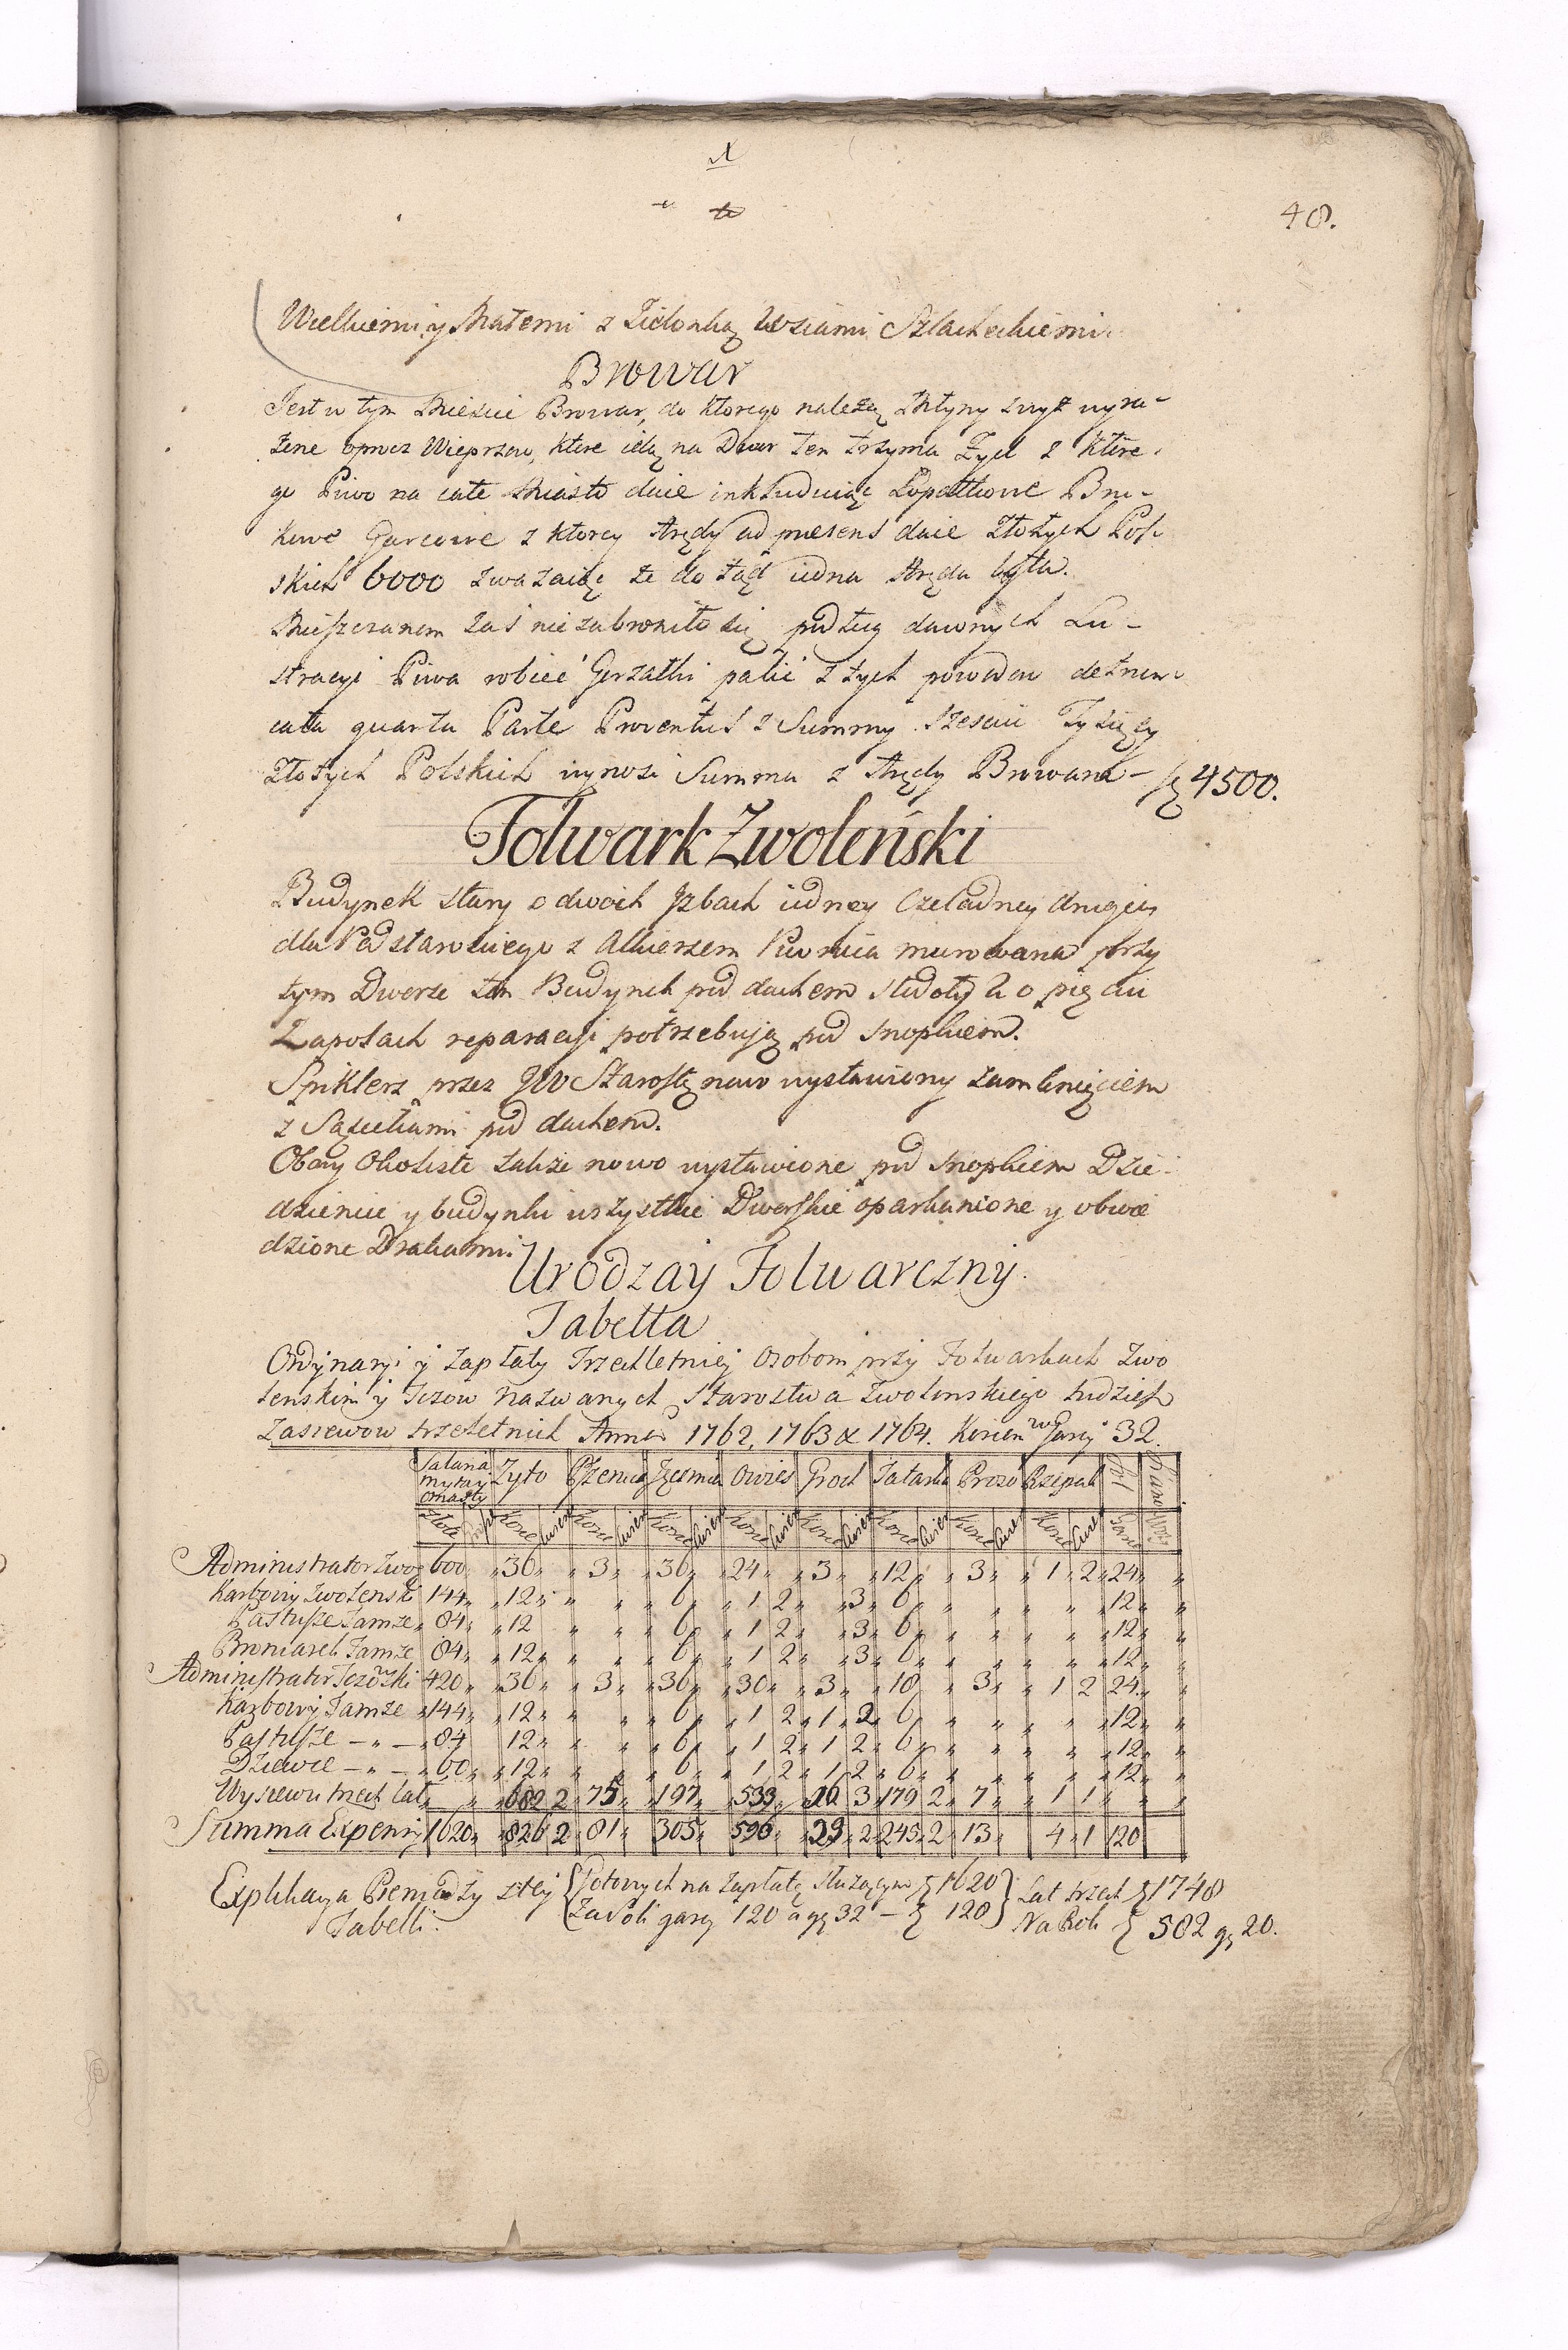 48.
Wielkiemi y Małemi z Zielonką Wsiami Szlacheckiemi.
Browar
Jest w tym Mieście Browar, do ktorego należą Młyny zwyż wyra-
żone oprocz Wieprzow, ktore idą na Dwor ten trzyma Żyd z ktore-
go Piwo na całe Miasto daie inkluduiąc Łopatkowe Bru-
kowe Garcowe z ktorey Arędy ad praesens daie Złotych Pol-
skich 6000 zważaiąc że do tąd iedna Aręda była.
Mieszczanom zaś nie zabroniło się podług dawnych Lu-
stracyi Piwa robić Gorzałki palić z tych powodow detrun-
cata quarta Parte Proventus z Summy Sześciu Tysięcy
Złotych Polskich wynosi Summa z Arędy Browaru - 4500.
Folwark Zwoleński
Budynek stary o dwóch Izbach iedney Czeladney drugiey
dla Podstarościego z Alkierzem Piwnica murowana przy
tym Dworze ten Budynek pod dachem Stodoły 2 o pięciu
Zapolach reparacyi potrzebuią pod snopkiem.
Spiklerz przez JW Starostę nowo wystawiony zamknięciem
z Sąsiekami pod dachem.
Obory Okoliste także nowo wystawione pod snopkiem Dzie-
dzieńce y budynki wszystkie Dworskie oparkanione y obwie
dzione Drakami.
Urodzay Folwarczny.
Tabella
Ordynaryi y zapłaty Trzechletniej Osobom przy Folwarkach Zwo
leńskim y Jezow nazwanych Starostwa Zwolenskiego tudziesz
Zasiewow trzeletnich Annor 1762, 1763 & 1764. Korzen w Garcy 32.
Żyto Pszenica Jęczmień Owies Groch Tatarka Proso Rzepak Sol Siano
Administrator Zwo 600 " 36 " " 3 " " 36 " 24 " " 3 " " 12 " " 3 " " 1 2 24 " "
Karbowy Zwolensk 144 " " 12 " " " " " 6 " " 1 2 " " 3 " 6 " " " " " " 12 " "
Pastusze Tamze " 84 " " 12 " " " " 6 " " 1 2 " " 3 " 6 " " " " " " 12 " "
Broniarek Tamze 84 " " 12 " " " " " 6 " " 1 2 " " 3 " 6 " " " " " " 12 " "
Administrator Jezowski 420 " " 36 " " 3 " " 36 " " 30 " " 3 " " 18 " " 3 " " 1 2 24 " "
Karbowy Tamze " 144 " " 12 " " " " " 6 " " 1 2 " 1 2 " 6 " " " " " " 12 " "
Pastusze - " - " 84 12 " " " " " 6 " " 1 2 " 1 2 " 6 " " " " " " 12 " "
Dziewce - " - " 60 " " 12 " " " " " 6 " " 1 2 " 1 2 " 6 " " " " " " 12 " "
Wysiewu trzech lat " " " 682 2 75 " " 197 " " 533 " 16 3 179 2 " 7 " " 1 1 " " "
Summa Expensy 1620 " " 826 2 81 " 305 " 590 " 29 2 245 2 13 " 4 1 120
Explikacya Pieniędzy z tey Gotowych na zapłatę służącym 1620 Lat trzech 1748
Tabelli. Za Soli garcy 120 a gr 32 - 128 Na Rok 582 gr 20.